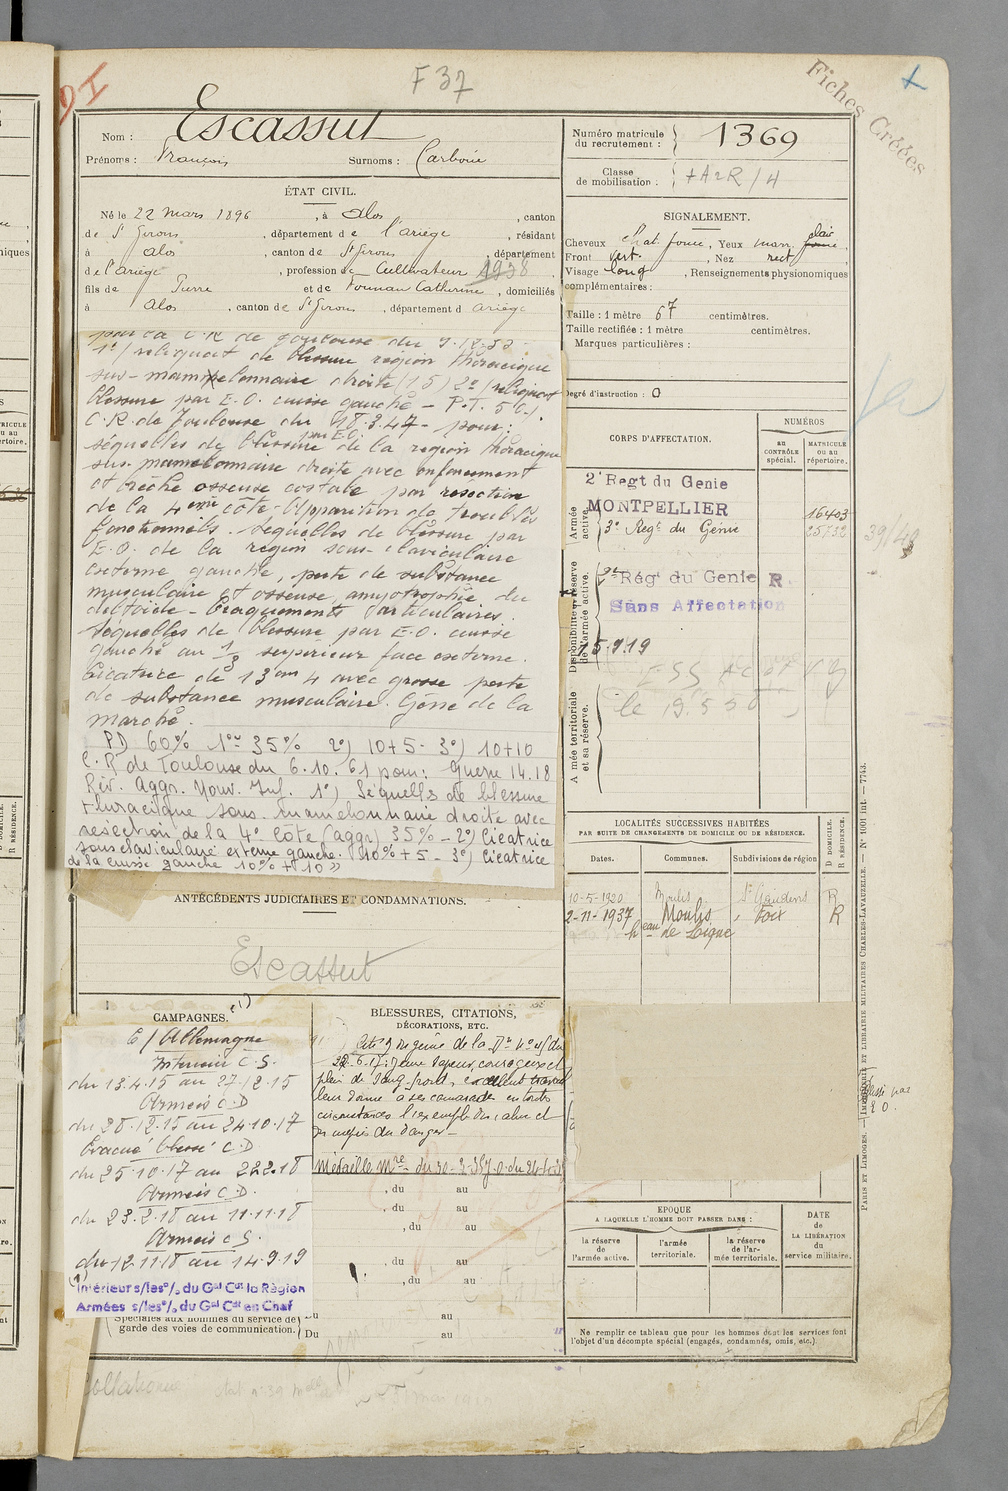 F 37
Fiches Créées
Nom : Escassut
Prénoms : François Surnoms :
Numéro matricule du recrutement : 1369
Classe de mobilisation :
ÉTAT CIVIL.
Né le 22 mars 1896, à Alos, canton
de St Girons, département de l'ariège, résidant
à alos, canton de St Girons, département
de l'ariège, profession de Cultivateur 1938
fils de Pierre et de Catherine, domiciliés
à alos, canton de St Girons, département d ariège
SIGNALEMENT.
Cheveux chat. , Yeux marr. clair
Front vert. , Nez rect
Visage long, Renseignements physionomiques
complémentaires :
Taille : 1 mètre 67 centimètres.
Taille rectifiée : 1 mètre centimètres.
Marques particulières :
Degré d'instruction : 0
par la C.R de Toulouse du
1°/ reliquat de blessure région thoracique
sus-mamelonnaire droite (15) 2°/ reliquat
blessure par E.O. cuisse gauche - P.T. 5 %.
C.R. de Toulouse du 18.3.47 - pour :
séquelles de blessure par E.O. de la region thoracique
sus-mamelonnaire droite avec enfoncement
et brèche osseuse costale par résection
de la 4eme côte - Apparition de troubles
fonctionnels. séquelles de blessure par
E.O. de la region sous-claviculaire
externe gauche, perte de substance
musculaire et osseuse, amyotrophie du
deltoïde - Craquements articulaires.
séquelles de blessure par E.O. cuisse
gauche au 1/3 supérieur face externe.
Cicatrice de 13 cm 4 avec grosse perte
de substance musculaire. Gêne de la
marche.
PD 60% 1° 35% 2°) 10+5 - 3°) 10+10
C.R de Toulouse du 6.10.61 pour : Guerre 14.18
Rev. Aggr. Nouv. Inf. 1°) Séquelles de blessure
thoracique sous-mamelonnaire droite avec
résection de la 4° Côte (aggr) 35% - 2°) Cicatrice
sous claviculaire externe gauche. 10% + 5 - 3°) Cicatrice
de la cuisse gauche 10% + 10 »
CORPS D'AFFECTATION.
NUMÉROS
au CONTRÔLE spécial.
MATRICULE ou au répertoire.
Armée active.
2e Regt du Genie
MONTPELLIER
3e Regt du Génie
16403
25732
39/40
Disponibilité et réserve de l'armée active.
Rég' du Genie R.
Sans Affectation
Armée territoriale et sa réserve.
LOCALITÉS SUCCESSIVES HABITÉES
PAR SUITE DE CHANGEMENTS DE DOMICILE OU DE RÉSIDENCE.
Dates. Communes. Subdivisions de région
D DOMICILE.
R RÉSIDENCE.
10-5-1920 Moulis St Gaudens R
2-11-1937 Moulis Foix R
heau de Ligne
ANTÉCÉDENTS JUDICIAIRES ET CONDAMNATIONS.
Escassut
CAMPAGNES. (1)
C/ Allemagne
Intérieur C.S.
du 13.4.15 au 27.12.15
Armées C.D
du 28.12.15 au 24.10.17
Evacué blessé C.D
du 25.10.17 au 22.2.18
Armées C.D.
du 23.2.18 au 11.11.18
Armées C.S.
du 12.11.18 au 14.9.19
(1)
Intérieur s/les o/. du Gal Cdt la Région
Armées s/les o/. du Gal Cdt en Chef
Spéciales aux hommes du service de
garde des voies de communication.
BLESSURES, CITATIONS,
DÉCORATIONS, ETC.
Cité
22.6.17: jeune sapeur, courageux et
plein de sang froid, excellent travail
leur donne à ses camarades en toutes
circonstances l'exemple du calme et
du mépris du danger -
Médaille Mre du
, du au
, du au
, du au
, du au
, du au
Du au
Du au
EPOQUE
A LAQUELLE L'HOMME DOIT PASSER DANS :
la réserve de l'armée active.
l'armée territoriale.
la réserve de l'armée territoriale.
DATE de LA LIBÉRATION du service militaire.
Ne remplir ce tableau que pour les hommes dont les services font
l'objet d'un décompte spécial (engagés, condamnés, omis, etc.)
PARIS ET LIMOGES. — IMPRIMERIE ET LIBRAIRIE MILITAIRES CHARLES-LAVAUZELLE. — N° 1001 int. — 7743.